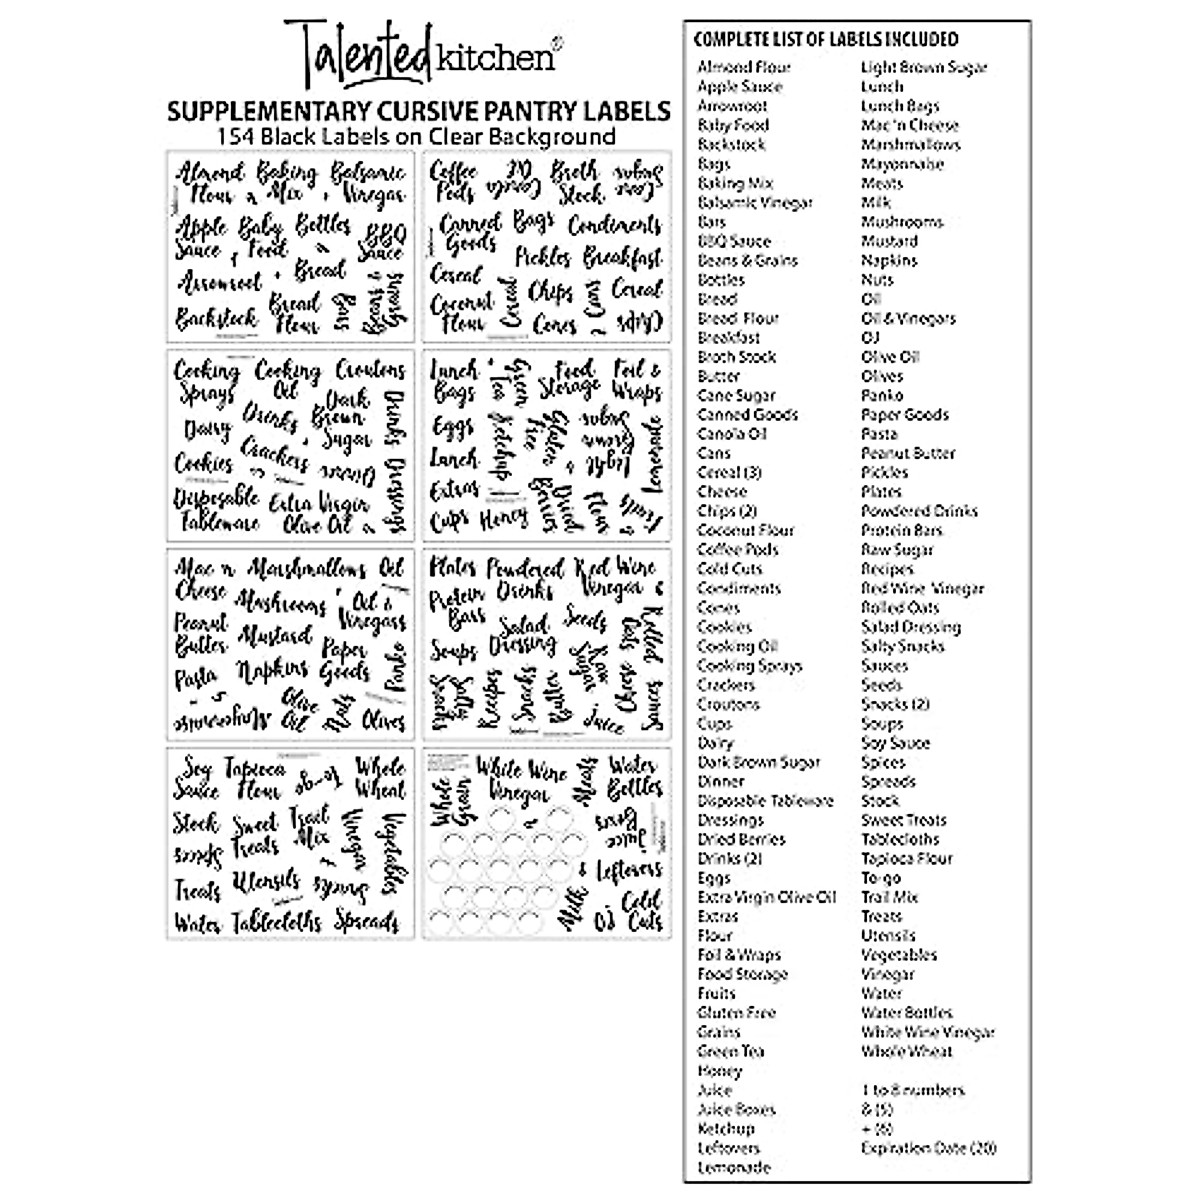 Talented kitchen®
SUPPLEMENTARY CURSIVE PANTRY LABELS
154 Black Labels on Clear Background
Almond Flour
Baking Mix
Balsamic Vinegar
Apple Sauce
Baby Food
Bottles
BBQ Sauce
Arrowroot
Bread
Backstock
Bread Flour
Bars
Beans &
Grains
Coffee Pods
Canola Oil
Broth Stock
Cane Sugar
Canned Goods
Bags
Condiments
Pickles
Breakfast
Cereal
Coconut Flour
Cereal
Chips
Cans
Cereal
Cones
Chips
Cooking Sprays
Cooking Oil
Croutons
Dairy
Drinks
Dark Brown Sugar
Drinks
Cookies
Crackers
Dinner
Dressings
Disposable Tableware
Extra Virgin Olive Oil
Lunch Bags
Green Tea
Food Storage
Foil & Wraps
Eggs
Ketchup
Gluten Free
Light Brown Sugar
Lemonade
Lunch
Extras
Cups
Honey
Dried Berries
Flour
Fruits
Mac 'n Cheese
Marshmallows
Oil
Mushrooms
Oil & Vinegars
Peanut Butter
Mustard
Paper Goods
Panko
Pasta
Napkins
Mayonnaise
Olive Oil
Nuts
Olives
Plates
Powdered Drinks
Red Wine Vinegar
&
Protein Bars
Salad Dressing
Seeds
Rolled Oats
Soups
Raw Sugar
Cheese
Sauces
Salty Snacks
Recipes
Snacks
Butter
Juice
Soy Sauce
Tapioca Flour
To-go
Whole Wheat
Stock
Sweet Treats
Trail Mix
Vinegar
Vegetables
Spices
Treats
Utensils
Snacks
Water
Tablecloths
Spreads
Whole Grain
White Wine Vinegar
Meats
Water Bottles
Juice Boxes
Leftovers
Milk
OJ
Cold Cuts
COMPLETE LIST OF LABELS INCLUDED
Almond Flour
Apple Sauce
Arrowroot
Baby Food
Backstock
Bags
Baking Mix
Balsamic Vinegar
Bars
BBQ Sauce
Beans & Grains
Bottles
Bread
Bread Flour
Breakfast
Broth Stock
Butter
Cane Sugar
Canned Goods
Canola Oil
Cans
Cereal (3)
Cheese
Chips (2)
Coconut Flour
Coffee Pods
Cold Cuts
Condiments
Cones
Cookies
Cooking Oil
Cooking Sprays
Crackers
Croutons
Cups
Dairy
Dark Brown Sugar
Dinner
Disposable Tableware
Dressings
Dried Berries
Drinks (2)
Eggs
Extra Virgin Olive Oil
Extras
Flour
Foil & Wraps
Food Storage
Fruits
Gluten Free
Grains
Green Tea
Honey
Juice
Juice Boxes
Ketchup
Leftovers
Lemonade
Light Brown Sugar
Lunch
Lunch Bags
Mac 'n Cheese
Marshmallows
Mayonnaise
Meats
Milk
Mushrooms
Mustard
Napkins
Nuts
Oil
Oil & Vinegars
OJ
Olive Oil
Olives
Panko
Paper Goods
Pasta
Peanut Butter
Pickles
Plates
Powdered Drinks
Protein Bars
Raw Sugar
Recipes
Red Wine Vinegar
Rolled Oats
Salad Dressing
Salty Snacks
Sauces
Seeds
Snacks (2)
Soups
Soy Sauce
Spices
Spreads
Stock
Sweet Treats
Tablecloths
Tapioca Flour
To-go
Trail Mix
Treats
Utensils
Vegetables
Vinegar
Water
Water Bottles
White Wine Vinegar
Whole Wheat
1 to 8 numbers
& (5)
+ (6)
Expiration Date (20)